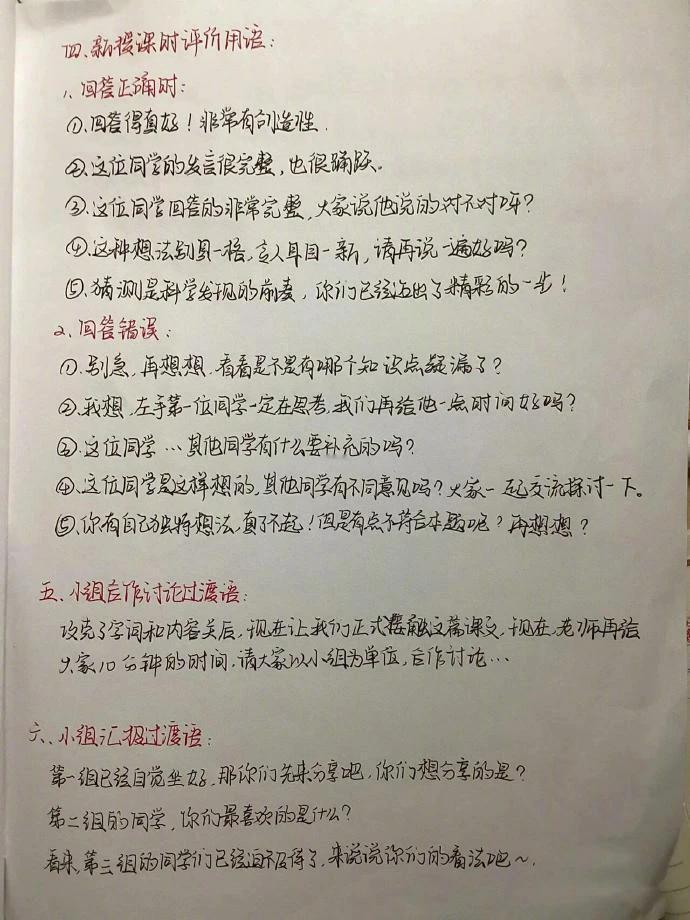 四、新授课时评价用语:
1、回答正确时:
①、回答得真好!非常有创造性.
②、这位同学的发言很完整,也很踊跃。
③、这位同学回答的非常完整,大家说他说的对不对呀?
④、这种想法别具一格,令人耳目一新,请再说一遍好吗?
⑤、猜测是科学发现的前奏,你们已经迈出了精彩的一步!
2、回答错误:
①、别急,再想想,看看是不是有哪个知识点疑漏了?
②、我想,左手第一位同学一定在思考,我们再给他一点时间好吗?
③、这位同学…其他同学有什么要补充的吗?
④、这位同学是这样想的,其他同学有不同意见吗?大家一起交流探讨一下。
⑤、你有自己独特想法,真了不起!但是有点不符合本题呢?再想想?
五、小组合作讨论过渡语:
攻克了字词和内容关后,现在让我们正式接触这篇课文,现在,老师再给
大家10分钟的时间,请大家以小组为单位,合作讨论…
六、小组汇报过渡语:
第一组已经自觉坐好,那你们先来分享吧,你们想分享的是?
第二组的同学,你们最喜欢的是什么?
看来,第三组的同学们已经迫不及待了,来说说你们的看法吧~.